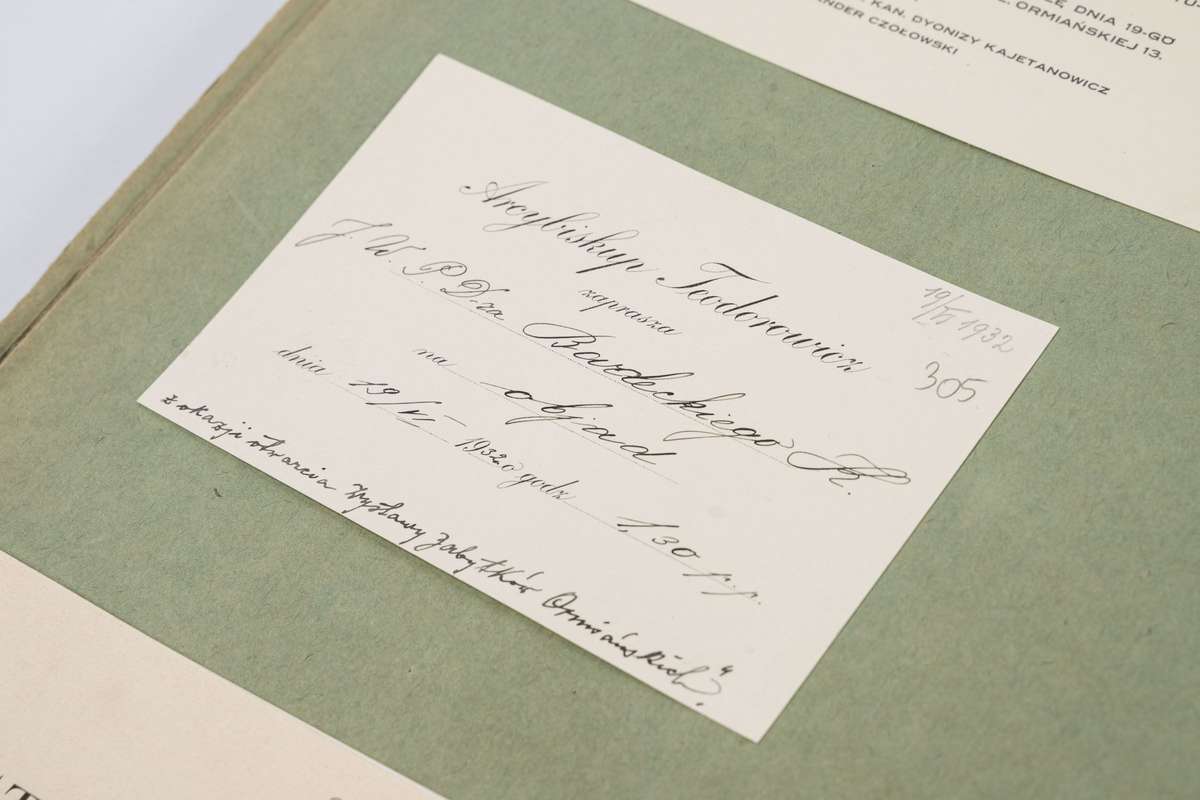 Ę DNIA 19-GO
. ORMIAŃSKIEJ 13.
. KAN. DYONIZY KAJETANOWICZ
ANDER CZOŁOWSKI
Arcybiskup Teodorowicz
zaprasza
19/VI 1932
305
J. W. P. D-ra Bardeckiego K.
na objad
dnia 19/VI - 1932 o godz. 1,30 p.p.
z okazji otwarcia Wystawy Zabytków Ormiańskich"